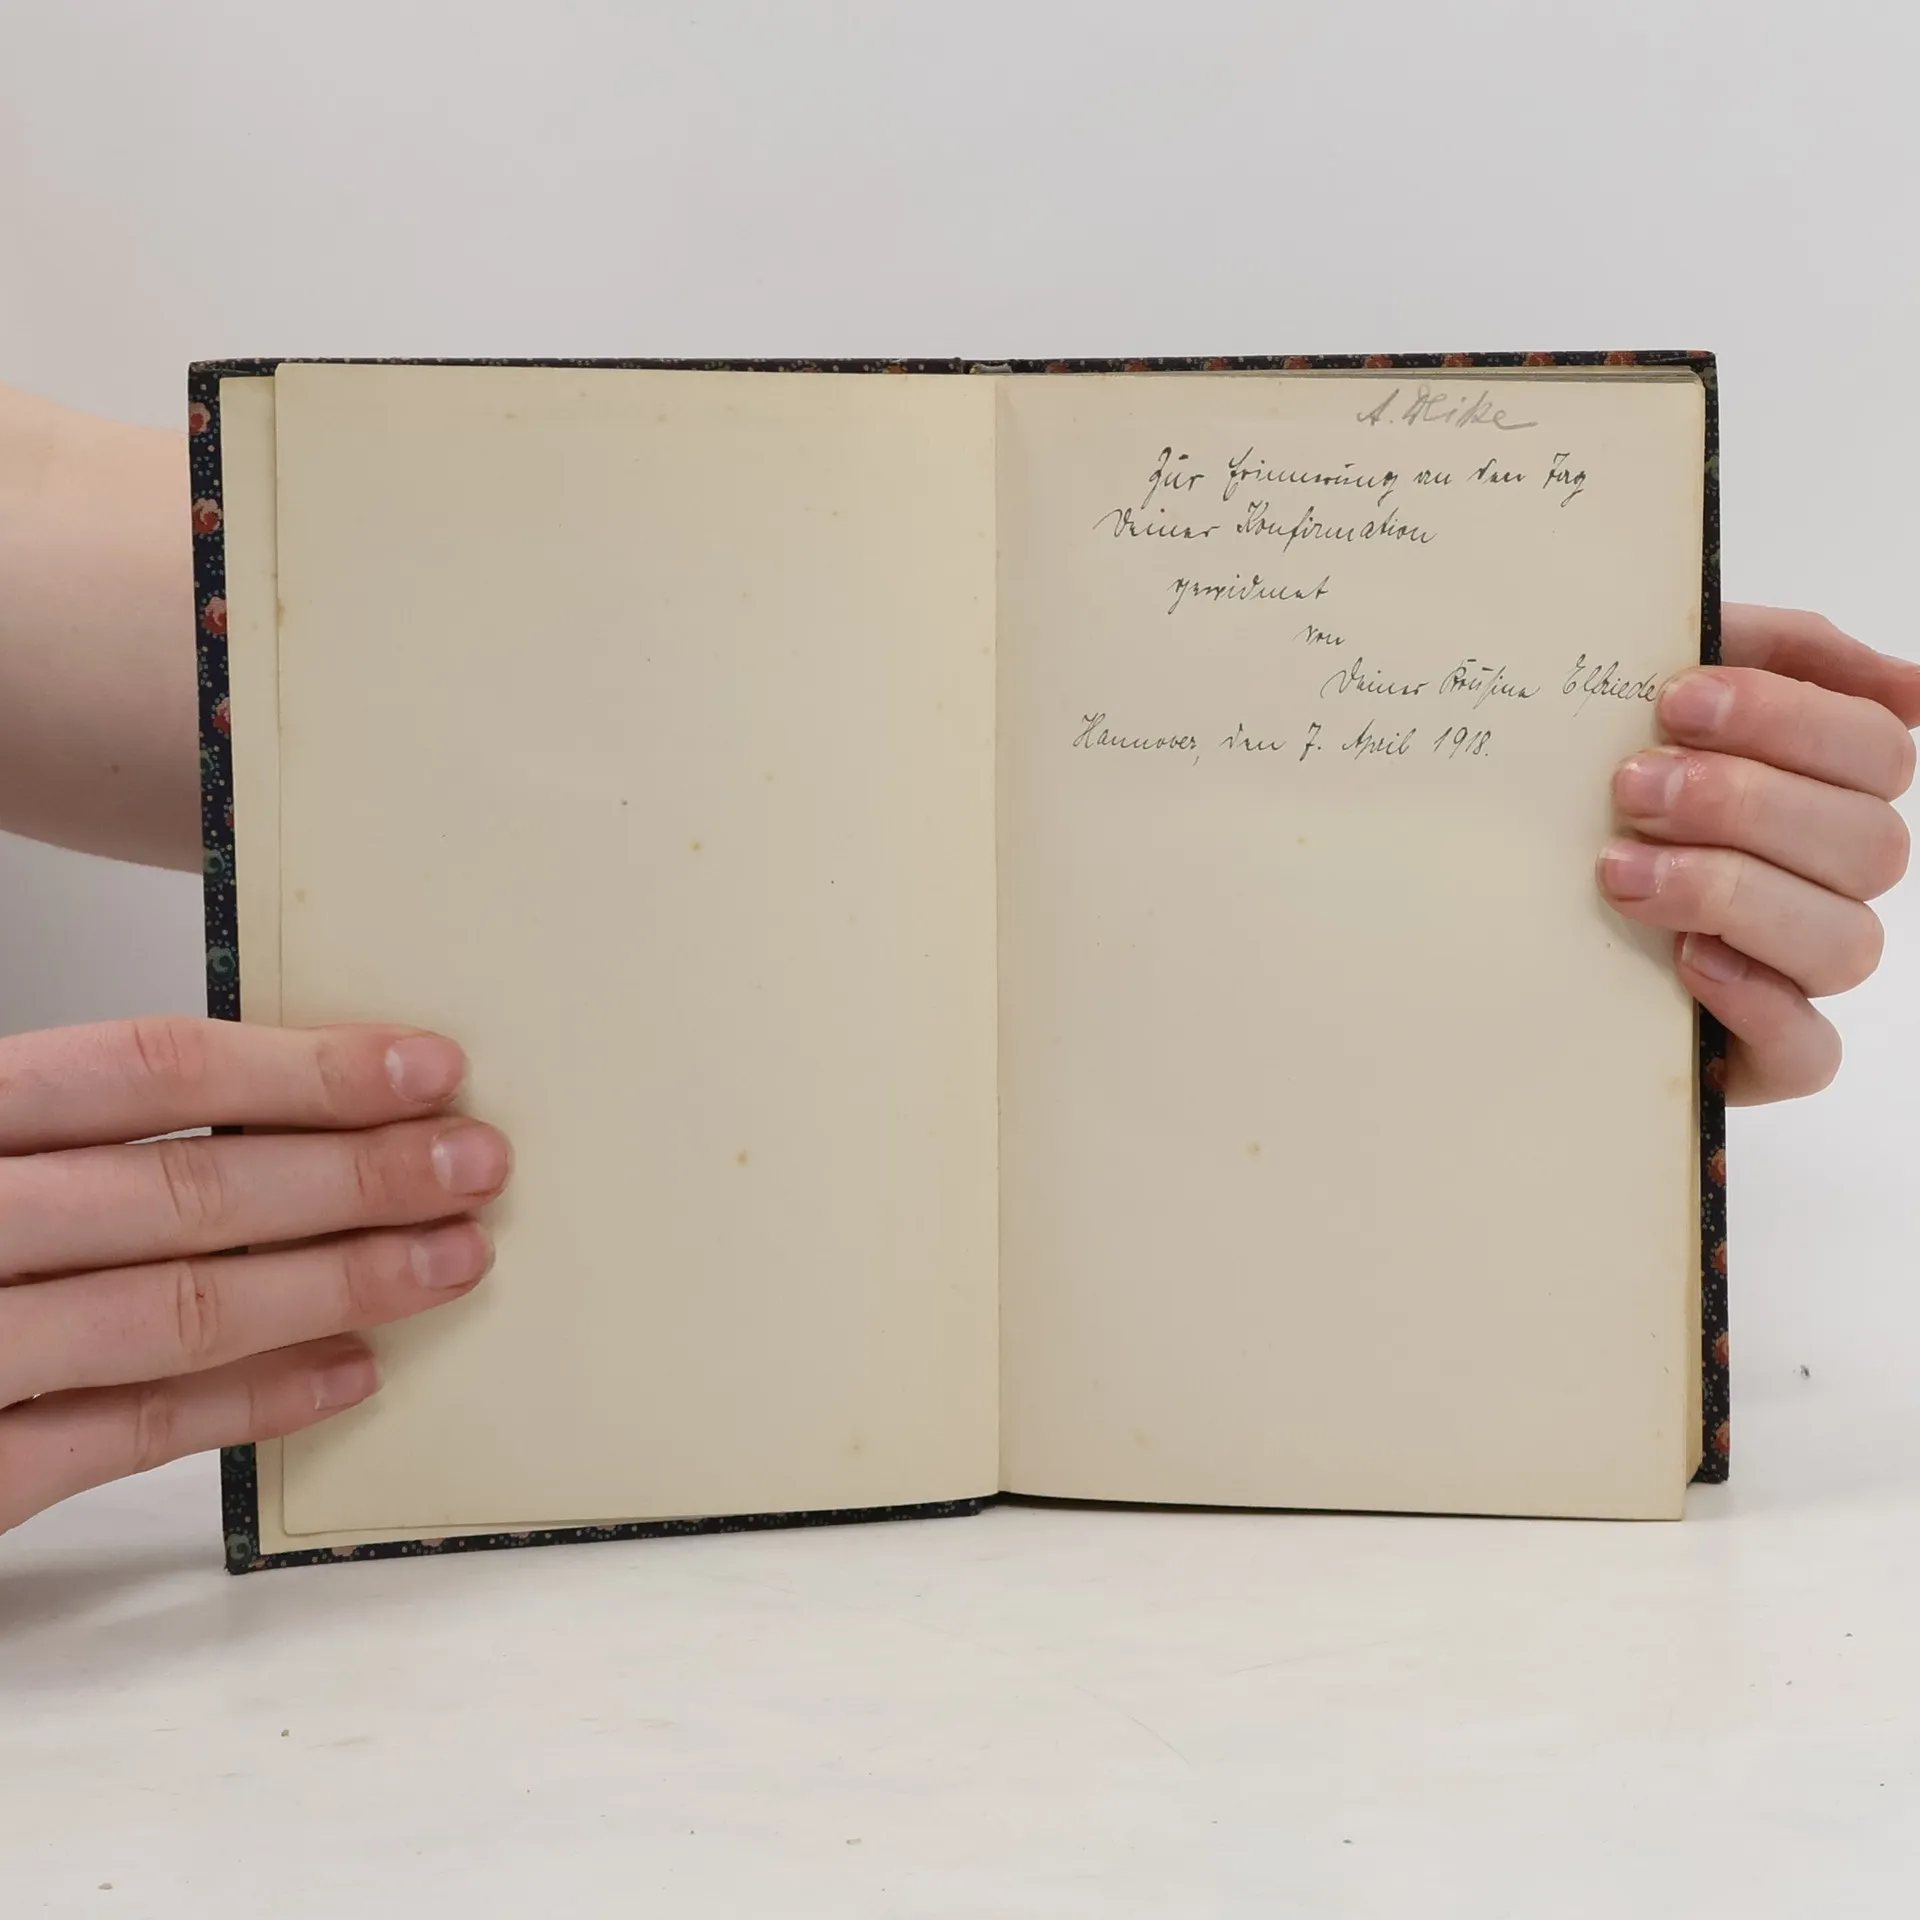 A.
Zur Erinnerung an den Tag
Deiner Konfirmation
gewidmet
von
Deiner Kousine Elfriede
Hannover, den 7. April 1918.